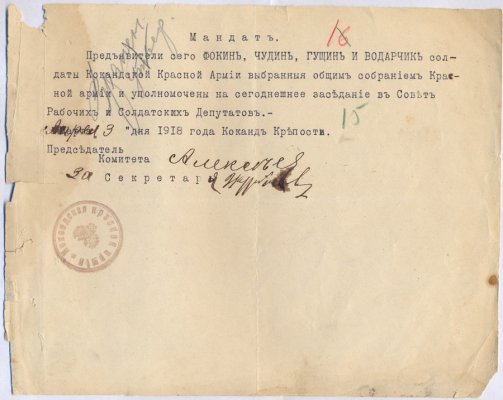 Мандатъ.
16
Предъявители сего ФОКИНЪ, ЧУДИНЪ, ГУЩИНЪ И ВОДАРЧИКЪ сол-
даты Кокандской Красной Арміи выбранныя общимъ собраніемъ Крас-
ной арміи и уполномочены на сегоднешнее засѣданіе въ Совѣтъ
Рабочихъ и Солдатскихъ Депутатовъ.-
15
3 "дня 1918 года Кокандъ Крѣпости.
Предсѣдатель
Комитета Алексѣев
За Секретаря
Кокандская красная армія